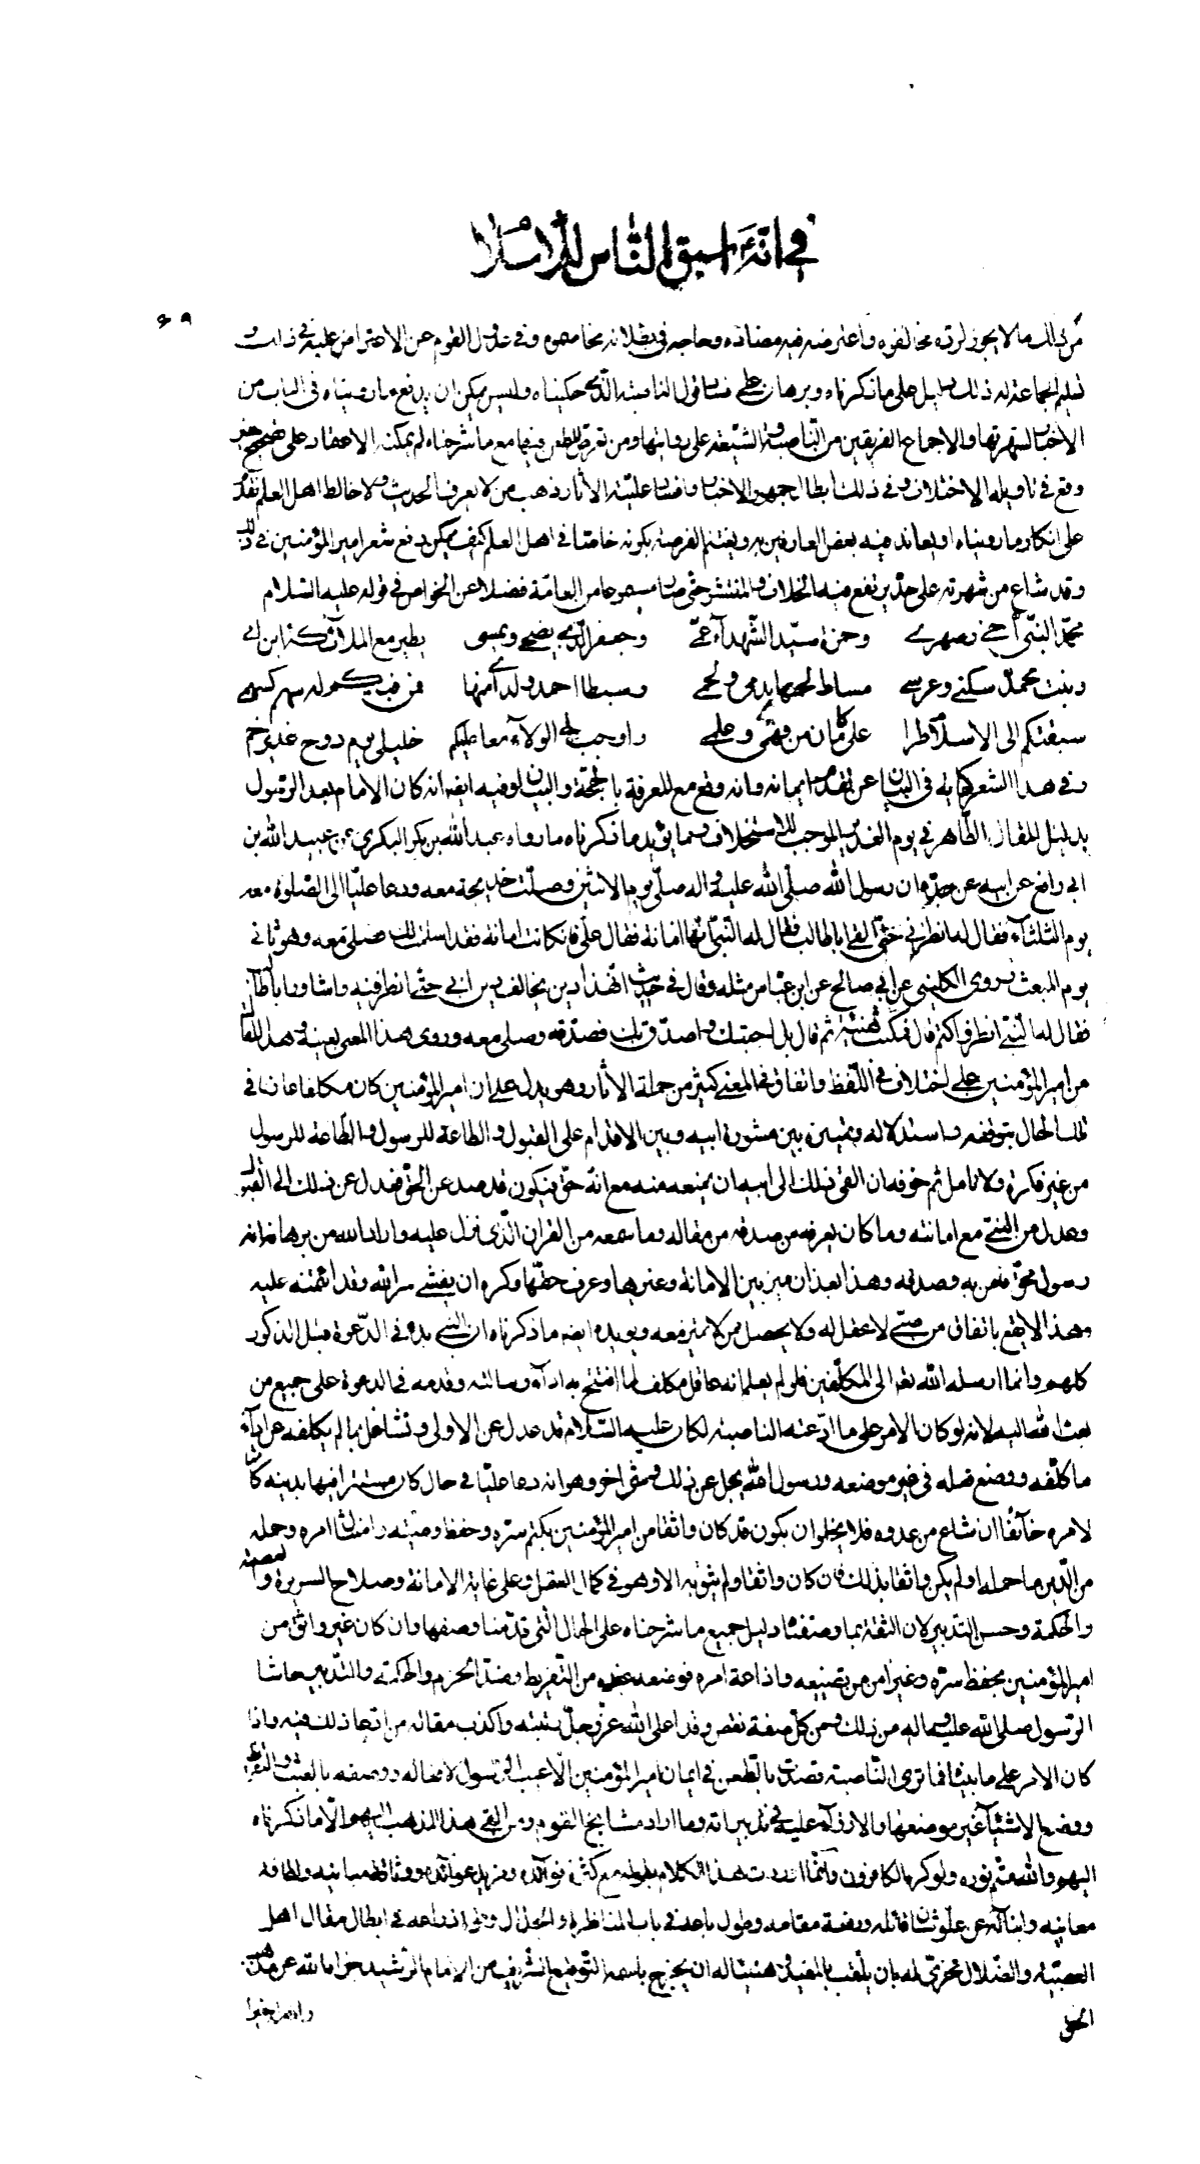 في انه ع اسبق الناس للاسلام
٦٩
من ذلك ما لا يجوز لرده مخالفوه واعترضه فيه مضادّه وحاجه في بطلانه مخاصموه وفي عدول القوم عن الاعتراض عليه في ذلك و
تسليم الجماعة له ذلك دليل على ما ذكرناه وبرهان على فساد قول الناصبة الذي حكيناه وليس يمكن ان يدفع ما رويناه في الباب من
الاخبار لشهرتها والاجماع الفريقين من الناصبة والشيعة على روايتها ومن تعرض للطعن فيها مع ما شرحناه لم يمكنه الاعتماد على تصحيح خبر
وقع في تاويله الاختلاف وفي ذلك ابطال جمهور الاخبار وافساد عليه الاثار وهب من لا يعرف الحديث ولا خالط اهل العلم يقدم
على انكار ما رويناه او يعاند فيه بعض العارفين به ويغتنم الفرصة بكونه خاصا في اهل العلم كيف يمكن دفع شعر امير المؤمنين في ذلك
وقد شاع من شهرته على حد يرتفع فيه الخلاف وانتشر حتى صار مسموعا من العامة فضلا عن الخواص في قوله عليه السلام
محمد النبي اخي وصهري وحمزة سيد الشهداء عمي وجعفر الذي يضحي ويمسي يطير مع الملائكة ابن امي
وبنت محمد سكني وعرسي مساط لحمها بدمي ولحمي وسبطا احمد ولداي منها فمن فيكم له سهم كسهمي
سبقتكم الى الاسلام طرا على ما كان من فهمي وعلمي واوجب لي الولاء معا عليكم خليلي يوم دوح غدير خم
وفي هذا الشعر كفاية في البيان عن تقدم ايمانه وانه وقع مع المعرفة بالحجة والبيان وفيه ايضا انه كان الامام بعد الرسول
بدليل المقال الظاهر في يوم الغدير الموجب للاستخلاف ومما يؤيد ما ذكرناه ما رواه عبد الله بن بكر البكري عن عبيد الله بن
ابي رافع عن ابيه عن جده ان رسول الله صلى الله عليه واله صلى يوم الاثنين وصلت خديجة معه ودعا عليا الى الصلوة معه
يوم الثلثاء فقال له انظرني حتى القى ابا طالب فقال له النبي انها امانة فقال علي فان كانت امانة فقد اسلمت لك فصلى معه وهو ثاني
يوم المبعث وروى الكلبي عن ابي صالح عن ابن عباس مثله وقال في حديثه ان هذا دين يخالف دين ابي حتى انظر فيه واشاور ابا طالب
فقال له النبي انظر واكتم قال فمكث هنيئة ثم قال بل اجبتك واصدق بك فصدقه وصلى معه وروى هذا المعنى بعينه وهذا المقال
من امير المؤمنين على اختلاف في اللفظ واتفاق في المعنى كثير من حملة الاثار وهو يدل على ان امير المؤمنين كان مكلفا عارفا في
تلك الحال بتوقفه واستدلاله وتميزه بين مشورة ابيه وبين الاقدام على القبول والطاعة للرسول
من غير فكرة ولا تامل ثم خوفه ان القى ذلك الى ابيه ان يمنعه منه مع انه حق فيكون قد صد عن الحق فعدل عن ذلك الى القبول
وعدل من النبي مع امانته وما كان يعرفه من صدقه من مقاله وما سمعه من القران الذي نزل عليه واراه الله من برهانه انه
رسول محق فامن به وصدقه وهذا بعد ان ميز بين الامانة وغيرها وعرف حقها وكره ان يفشي سر الله وقد ائتمنه عليه
وهذا لا يقع باتفاق من صبي لا عقل له ولا يحصل ممن لا تميز معه ويؤيد ايضا ما ذكرناه ان النبي بدء في الدعوة قبل الذكور
كلهم وانما ارسله الله تعالى الى المكلفين فلو لم يعلم انه عاقل مكلف لما افتتح به اداء رسالته وقدمه في الدعوة على جميع من
بعث الله اليه لانه لو كان الامر على ما ادعته الناصبة لكان عليه السلام قد عدل عن الاولى وتشاغل بما لم يكلفه عن اداء
ما كلفه ووضع فعله في غير موضعه ورسول الله يجل عن ذلك وشئ اخر وهو انه دعا عليا في حال كان مستترا فيها بدينه كاتما
لامره خائفا ان شاع من عدوه فلا يخلو ان يكون قد كان واثقا من امير المؤمنين بكتم سره وحفظ وصيته وامتثال امره وحمله
من الدين ما حمله او لم يكن واثقا بذلك فان كان واثقا ولم يثق به الا وهو في كمال العقل وعلى غاية الامانة وصلاح السريرة والعصمة
والحكمة وحسن التدبير لان الثقة بما وصفنا دليل جميع ما شرحناه على الحال التي قدمنا وصفها وان كان غير واثق من
امير المؤمنين بحفظ سره وغير امن من تضييعه واذاعة امره فوضعه عنده من التفريط وضد الحزم والحكمة والتدبير حاشا
الرسول صلى الله عليه واله من ذلك ومن كل صفة نقص وقد اعلى الله عز وجل رتبته واكذب مقال من ادعى ذلك فيه واذا
كان الامر على ما بيناه فما ترى الناصبة قصدت بالطعن في ايمان امير المؤمنين الا عيب الرسول والذم لافعاله ووصفه بالعبث والتفريط
ووضع الاشياء غير موضعها والازراء عليه في تدبيراته وما اراد مشايخ القوم ومن القى هذا المذهب اليهم الا ما ذكرناه
اليهم والله متم نوره ولو كره الكافرون وانما اوردت هذا الكلام بطوله مع كثرة فوائده ومزيد عوائده ووثاقة مبانيه ولطافة
معانيه وانبائه عن علو شان قائله ورفعة مقامه وطول باعه في باب المناظرة والجدال ذراعه في ابطال مقال اهل
العصبية والضلال فحري له بان يلقب بالمفيد وهنيئا له ان يخرج باسمه التوقيع الشريف من الامام الرشيد جزاه الله عن مذهب
الحق
واهله خيرا